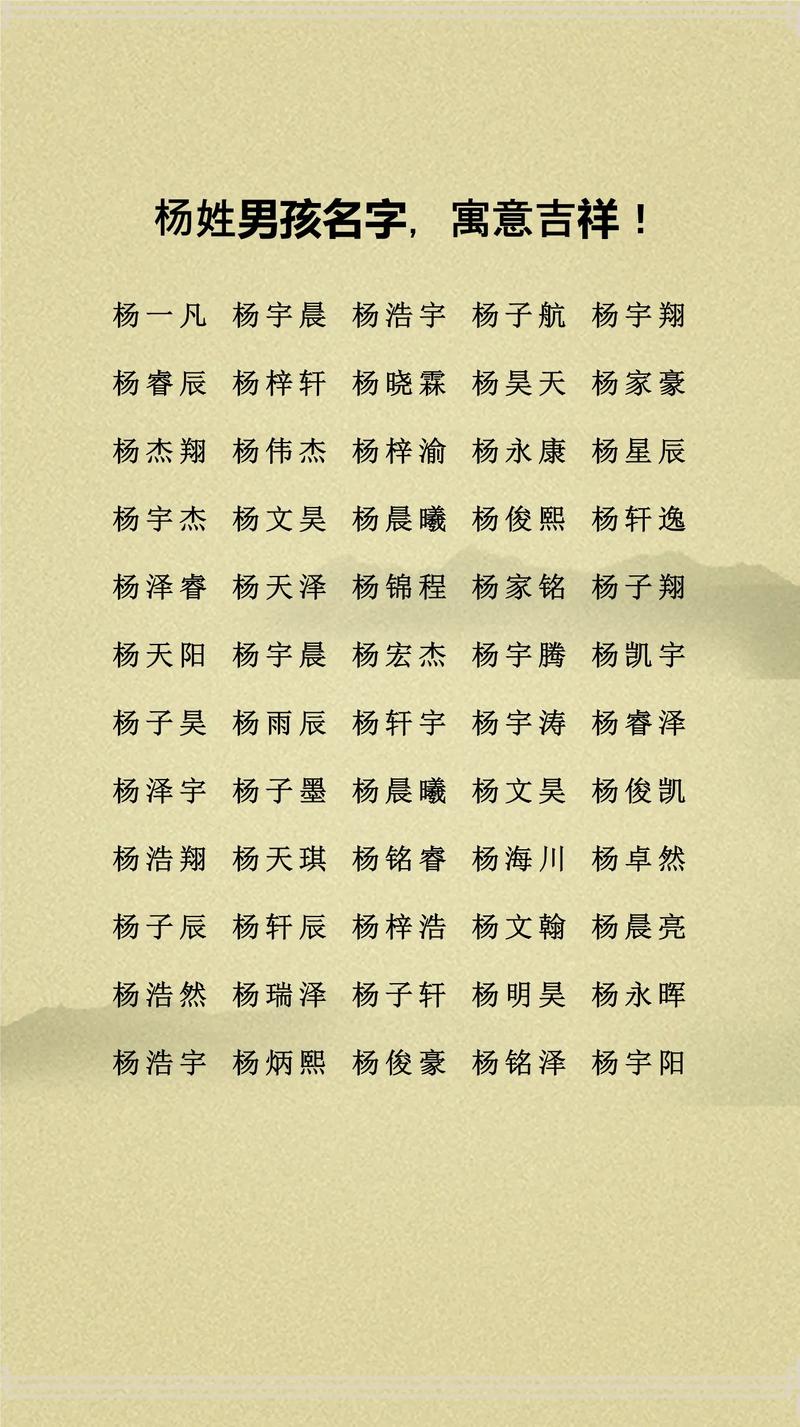 杨姓男孩名字，寓意吉祥！
杨一凡 杨宇晨 杨浩宇 杨子航 杨宇翔
杨睿辰 杨梓轩 杨晓霖 杨昊天 杨家豪
杨杰翔 杨伟杰 杨梓渝 杨永康 杨星辰
杨宇杰 杨文昊 杨晨曦 杨俊熙 杨轩逸
杨泽睿 杨天泽 杨锦程 杨家铭 杨子翔
杨天阳 杨宇晨 杨宏杰 杨宇腾 杨凯宇
杨子昊 杨雨辰 杨轩宇 杨宇涛 杨睿泽
杨泽宇 杨子墨 杨晨曦 杨文昊 杨俊凯
杨浩翔 杨天琪 杨铭睿 杨海川 杨卓然
杨子辰 杨轩辰 杨梓浩 杨文翰 杨晨亮
杨浩然 杨瑞泽 杨子轩 杨明昊 杨永晖
杨浩宇 杨炳熙 杨俊豪 杨铭泽 杨宇阳